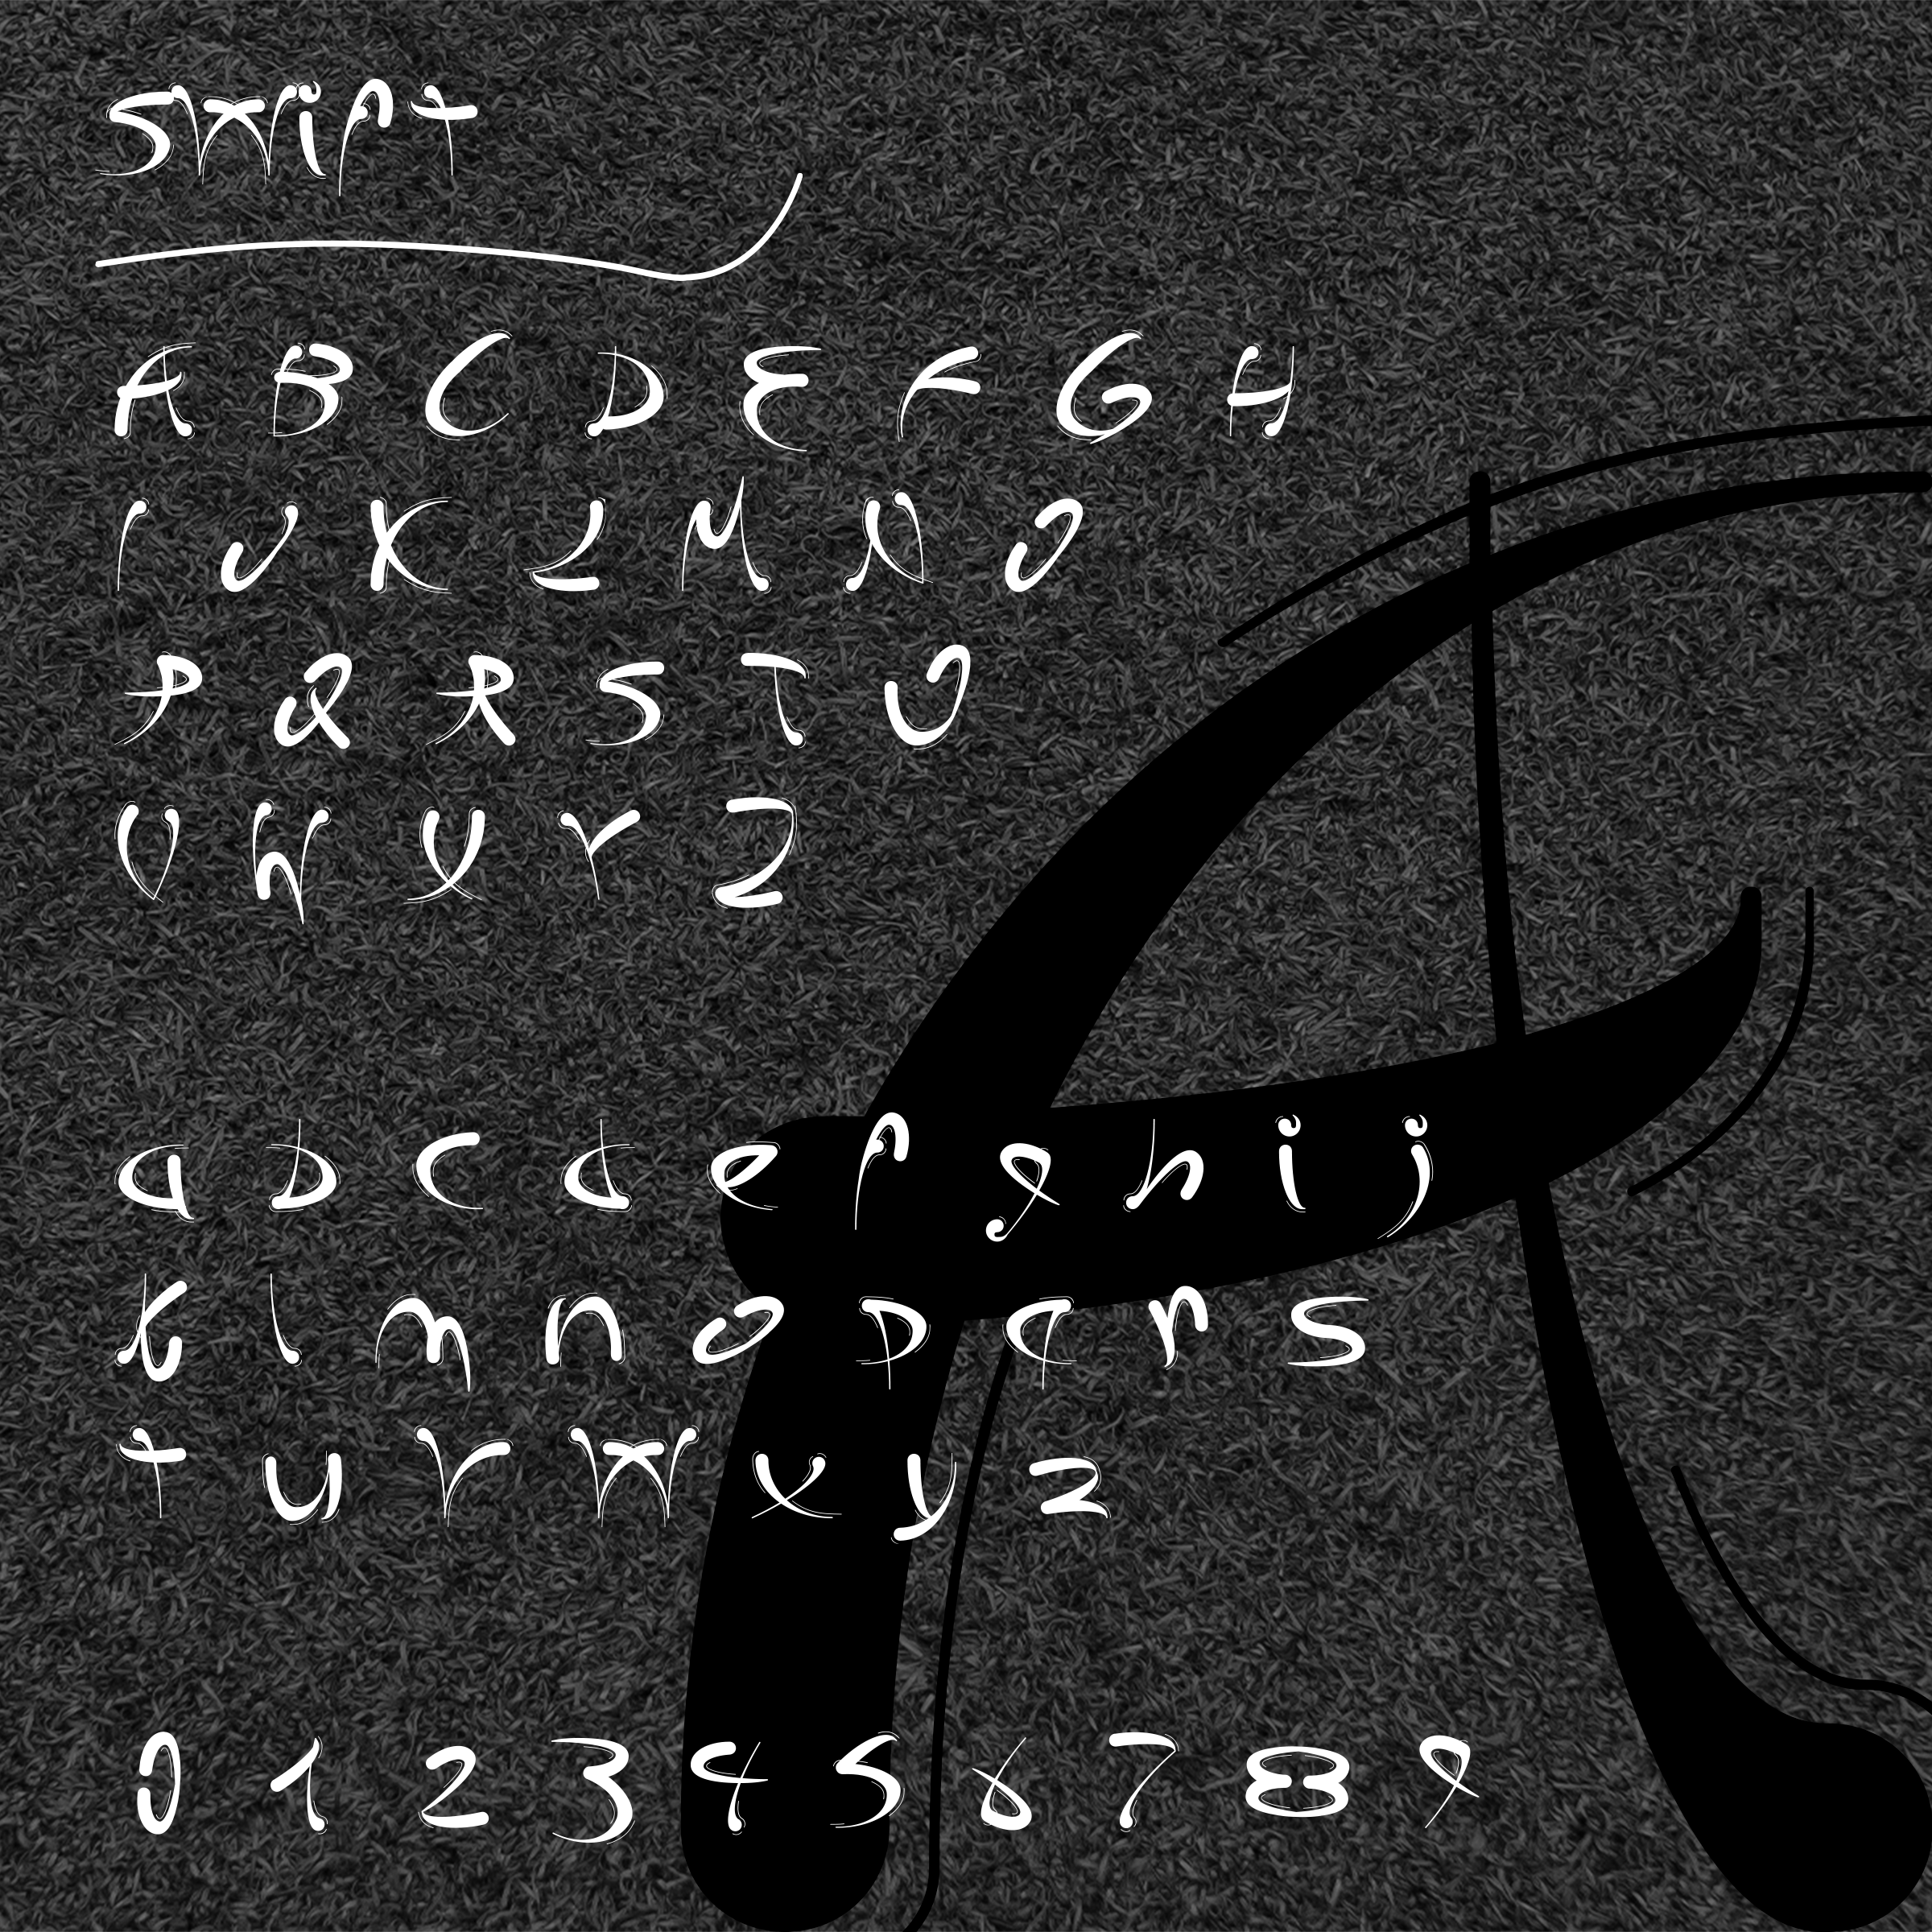 swift
A B C D E F G H
I J K L M N O
P Q R S T U
V W X Y Z
a b c d e f g h i j
k l m n o p q r s
t u v w x y z
0 1 2 3 4 5 6 7 8 9
A